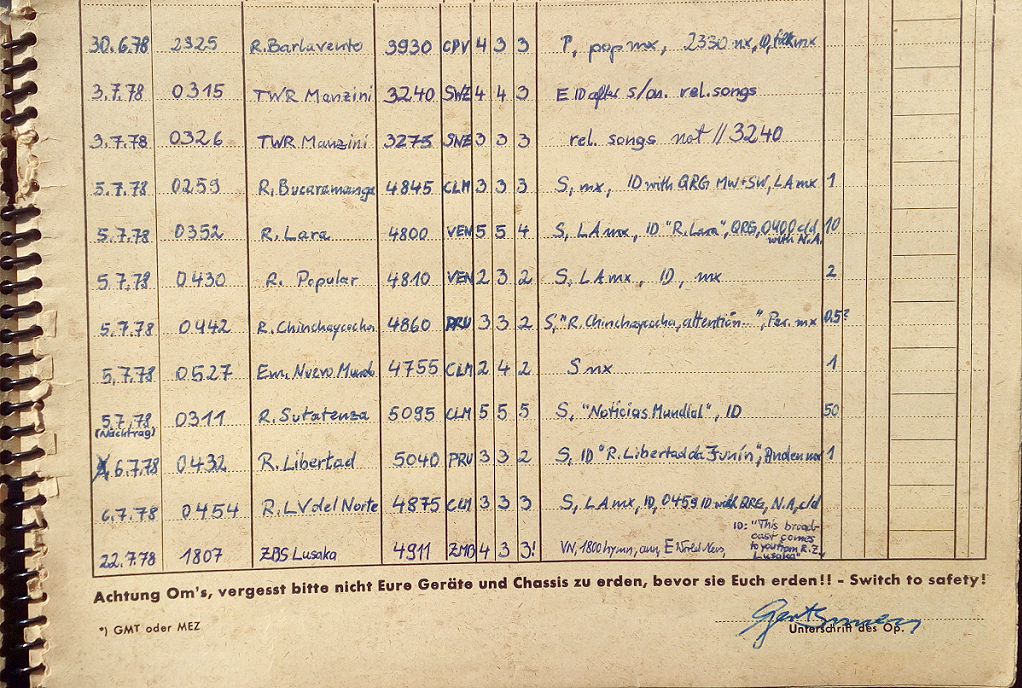 30.6.78 2325 R. Barlavento 3930 CPV 4 3 3 P, pop mx, 2330 nx, ID, folk mx
3.7.78 0315 TWR Manzini 3240 SWZ 4 4 3 E ID after s/on. rel. songs
3.7.78 0326 TWR Manzini 3275 SWZ 3 3 3 rel. songs not // 3240
5.7.78 0259 R. Bucaramanga 4845 CLM 3 3 3 S, mx, ID with QRG MW+SW, LA mx 1
5.7.78 0352 R. Lara 4800 VEN 5 5 4 S, LA mx, ID "R. Lara", QRG, 0400 c/d with N.A. 10
5.7.78 0430 R. Popular 4810 VEN 2 3 2 S, LA mx, ID, mx 2
5.7.78 0442 R. Chinchaycocha 4860 PRU 3 3 2 S, "R. Chinchaycocha, attention...", Per. mx 0.5?
5.7.78 0527 Em. Nuevo Mundo 4755 CLM 2 4 2 S nx 1
5.7.78 0311 R. Sutatenza 5095 CLM 5 5 5 S, "Noticias Mundial", ID 50
(Nachtrag)
6.7.78 0432 R. Libertad 5040 PRU 3 3 2 S, ID "R. Libertad da Junín", Anden mx 1
6.7.78 0454 R. LV del Norte 4875 CLM 3 3 3 S, LA mx, ID, 0459 ID with QRG, N.A, c/d
22.7.78 1807 ZBS Lusaka 4911 ZMB 4 3 3! VN, 1800 hymn, ann, E World News, ID: "This broadcast comes to you from R. Z., Lusaka"
Achtung Om's, vergesst bitte nicht Eure Geräte und Chassis zu erden, bevor sie Euch erden!! - Switch to safety!
*) GMT oder MEZ
Unterschrift des Op.